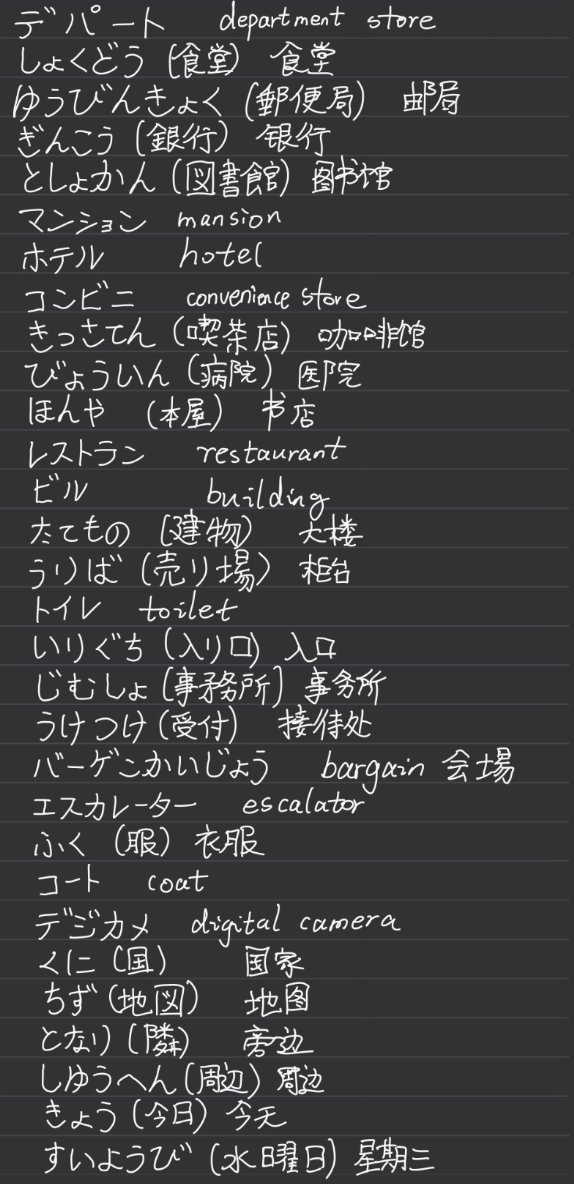 デパート department store
しょくどう (食堂) 食堂
ゆうびんきょく (郵便局) 邮局
ぎんこう (銀行) 银行
としょかん (図書館) 图书馆
マンション mansion
ホテル hotel
コンビニ convenience store
きっさてん (喫茶店) 咖啡馆
びょういん (病院) 医院
ほんや (本屋) 书店
レストラン restaurant
ビル building
たてもの (建物) 大楼
うりば (売り場) 柜台
トイレ toilet
いりぐち (入り口) 入口
じむしょ (事務所) 事务所
うけつけ (受付) 接待处
バーゲンかいじょう bargain 会場
エスカレーター escalator
ふく (服) 衣服
コート coat
デジカメ digital camera
くに (国) 国家
ちず (地図) 地图
となり (隣) 旁边
しゅうへん (周辺) 周边
きょう (今日) 今天
すいようび (水曜日) 星期三